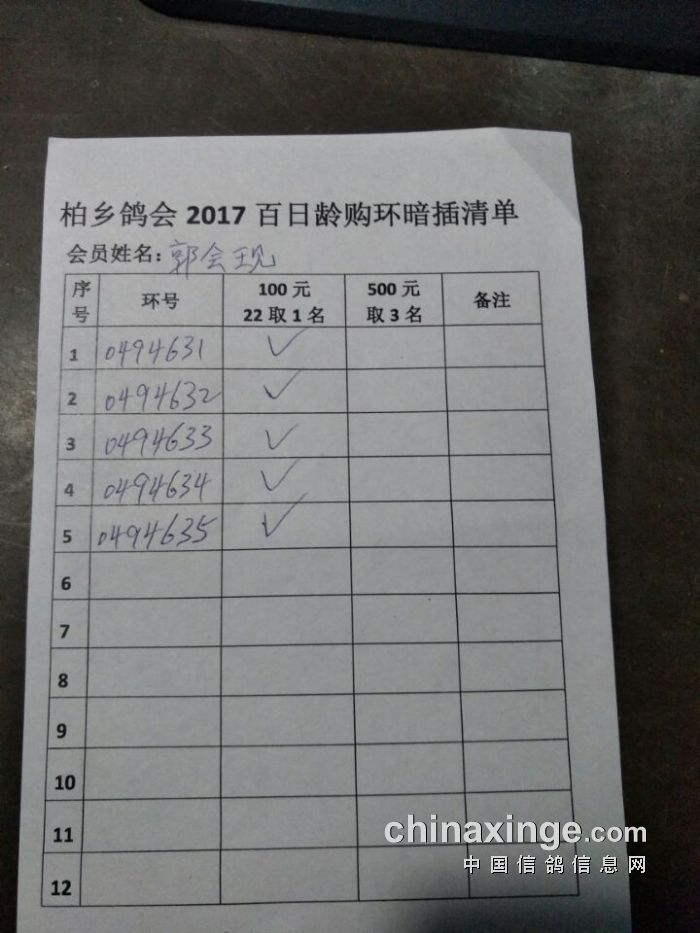 柏乡鸽会 2017 百日龄购环暗插清单
会员姓名：郭会现
序号 环号 100 元 22 取 1 名 500 元 取 3 名 备注
1 0494631 ✓
2 0494632 ✓
3 0494633 ✓
4 0494634 ✓
5 0494635 ✓
6
7
8
9
10
11
12
chinaxinge.com
中国信鸽信息网